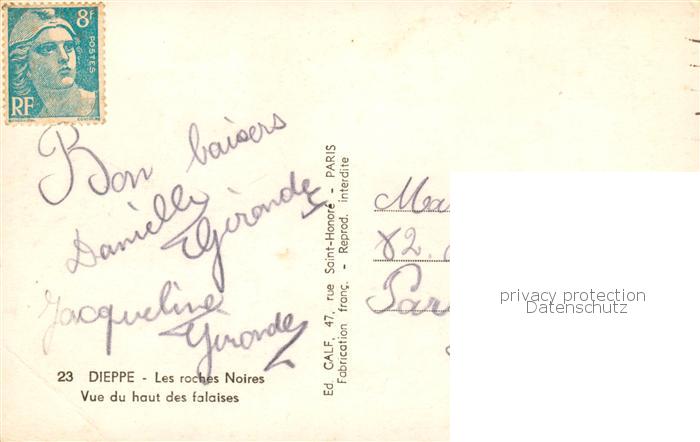 8F
POSTES
RF
Bon baisers
Danielle Gironde
Jacqueline Gironde
23 DIEPPE - Les roches Noires
Vue du haut des falaises
Ed. CALF, 47, rue Saint-Honoré - PARIS
Fabrication franç. - Reprod. interdite
82.
privacy protection
Datenschutz